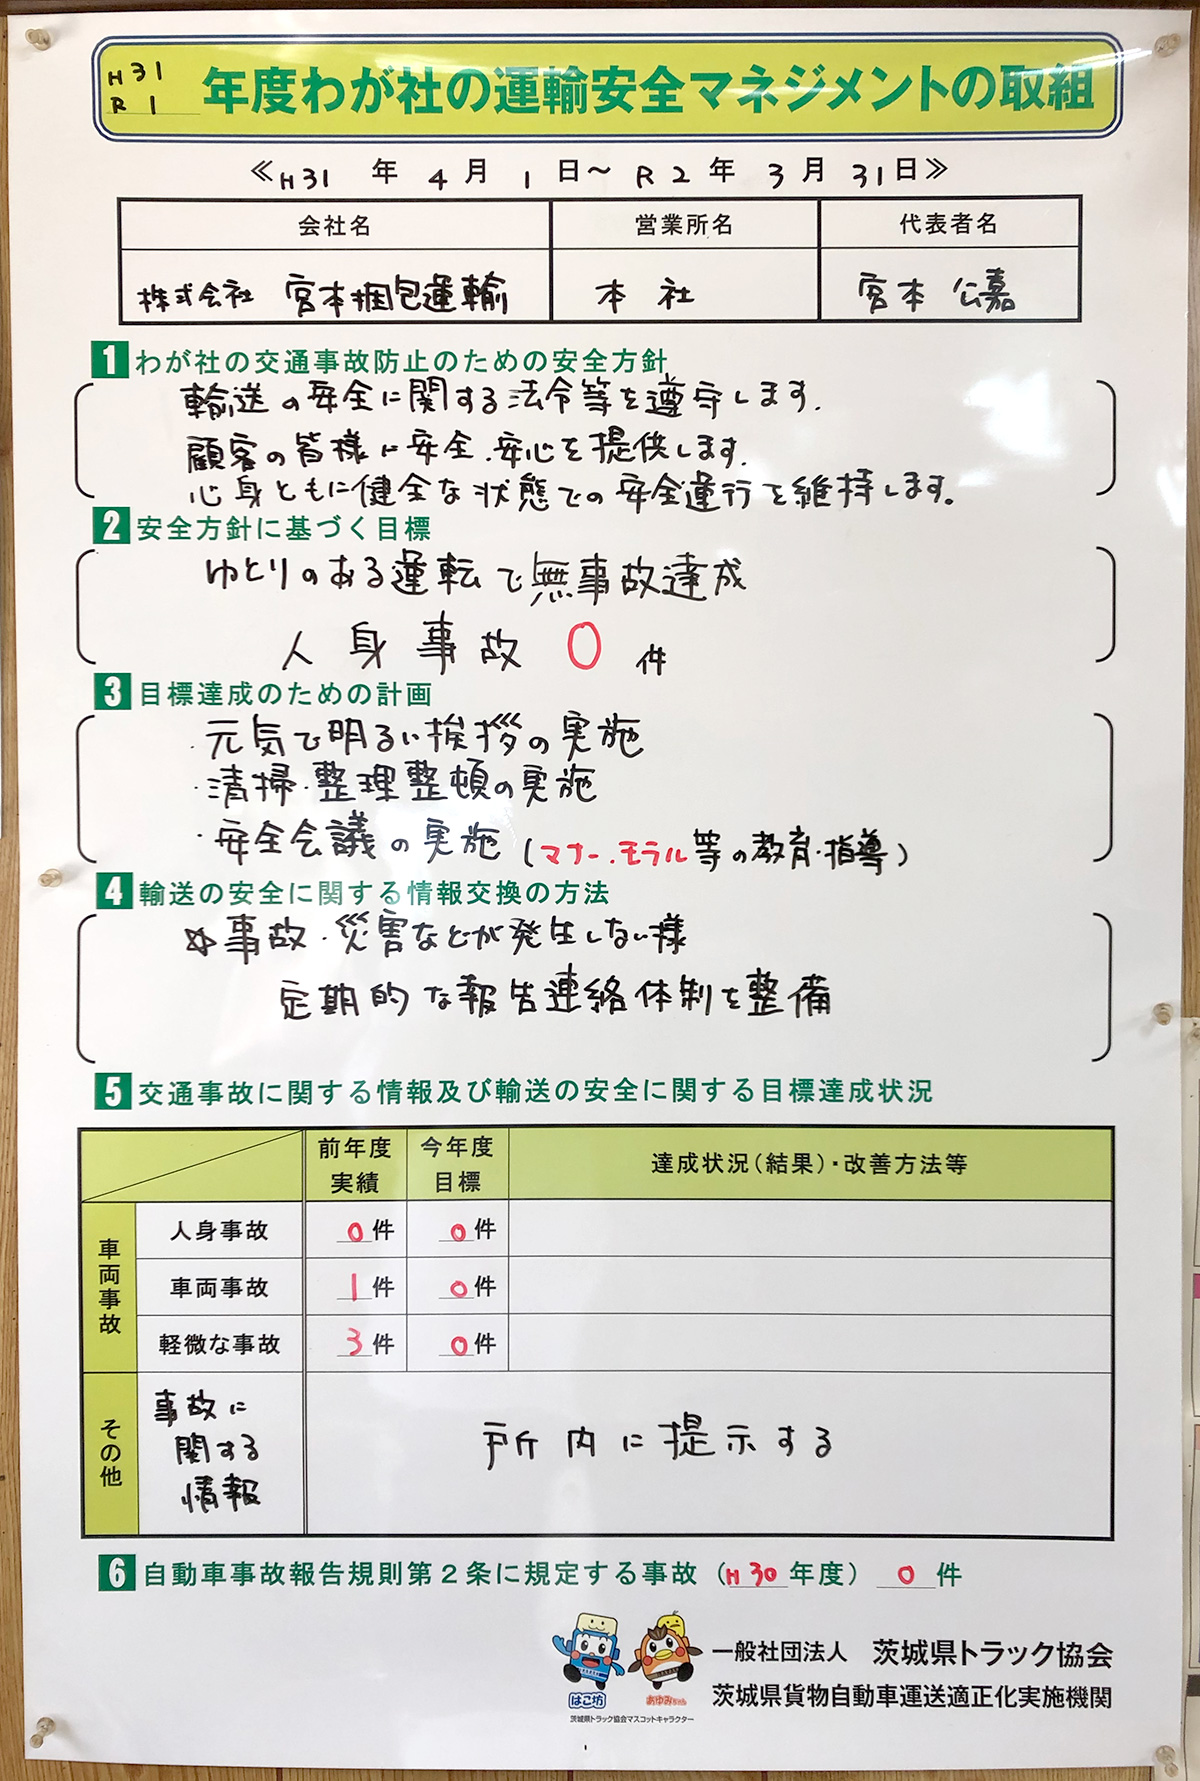 H31
R 1 年度わが社の運輸安全マネジメントの取組
≪H31 年 4 月 1 日～ R2 年 3 月 31日≫
会社名 営業所名 代表者名
株式会社 宮本梱包運輸 本 社 宮本 公嘉
1 わが社の交通事故防止のための安全方針
輸送の安全に関する法令等を遵守します.
顧客の皆様に安全.安心を提供します.
心身ともに健全な状態での安全運行を維持します。
2 安全方針に基づく目標
ゆとりのある運転で無事故達成
人 身 事 故 0 件
3 目標達成のための計画
・元気で明るい挨拶の実施
・清掃・整理整頓の実施
・安全会議の実施 (マナー.モラル等の教育・指導)
4 輸送の安全に関する情報交換の方法
☆事故・災害などが発生しない様
定期的な報告連絡体制を整備
5 交通事故に関する情報及び輸送の安全に関する目標達成状況
前年度実績 今年度目標 達成状況(結果)・改善方法等
車両事故
人身事故 0件 0件
車両事故 1件 0件
軽微な事故 3件 0件
その他
事故に
関する
情報
所内に提示する
6 自動車事故報告規則第2条に規定する事故 (H30年度) 0件
一般社団法人 茨城県トラック協会
茨城県貨物自動車運送適正化実施機関
はこ坊 あゆみちゃん
茨城県トラック協会マスコットキャラクター